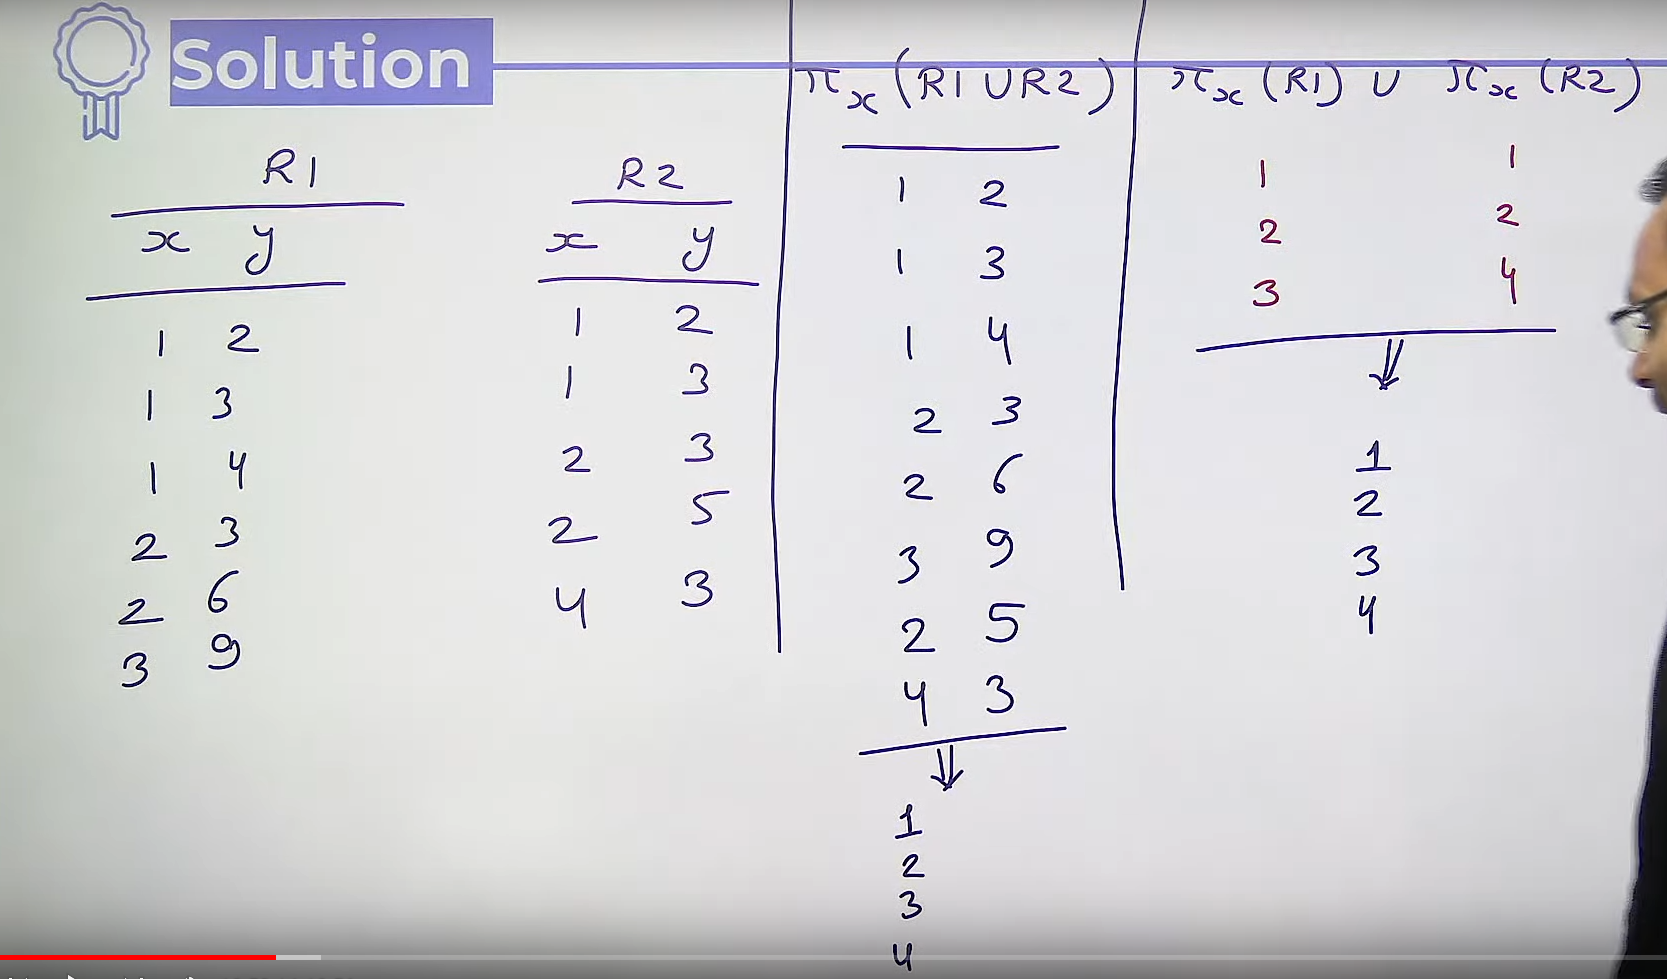 Solution
R1
x y
1 2
1 3
1 4
2 3
2 6
3 9
R2
x y
1 2
1 3
2 3
2 5
4 3
πx (R1 ∪ R2)
1 2
1 3
1 4
2 3
2 6
3 9
2 5
4 3
⇓
1
2
3
4
πx (R1) ∪ πx (R2)
1 1
2 2
3 4
⇓
1
2
3
4